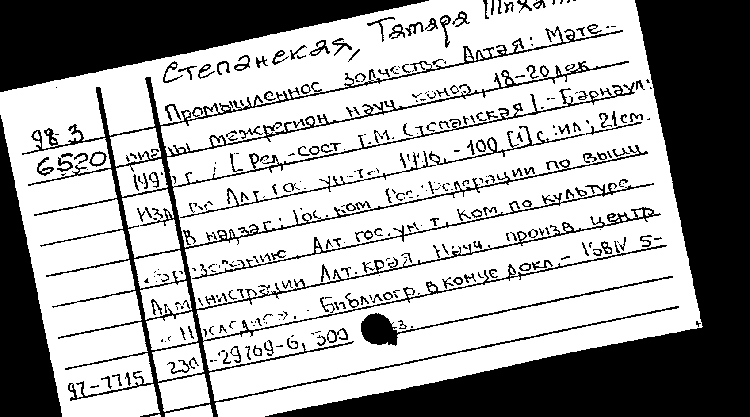 Степанская, Тамара
Промышленное зодчество Алтая: Мате-
98-3 риалы межрегион. науч. конф., 18-20 дек.
6520 г. / [Ред.-сост. Т.М. Степанская]. - Барнаул:
Изд-во Алт. гос. ун-та, 1996. - 100, [1] с.: ил.; 21 см.
В надзаг.: Гос. ком. Рос. Федерации по высш.
образованию. Алт. гос. ун-т, Ком. по культуре
Администрации Алт. края, Науч. произв. центр
"Наследие". - Библиогр. в конце докл. - ISBN 5-
97-7715 230-29769-6, 300 экз.